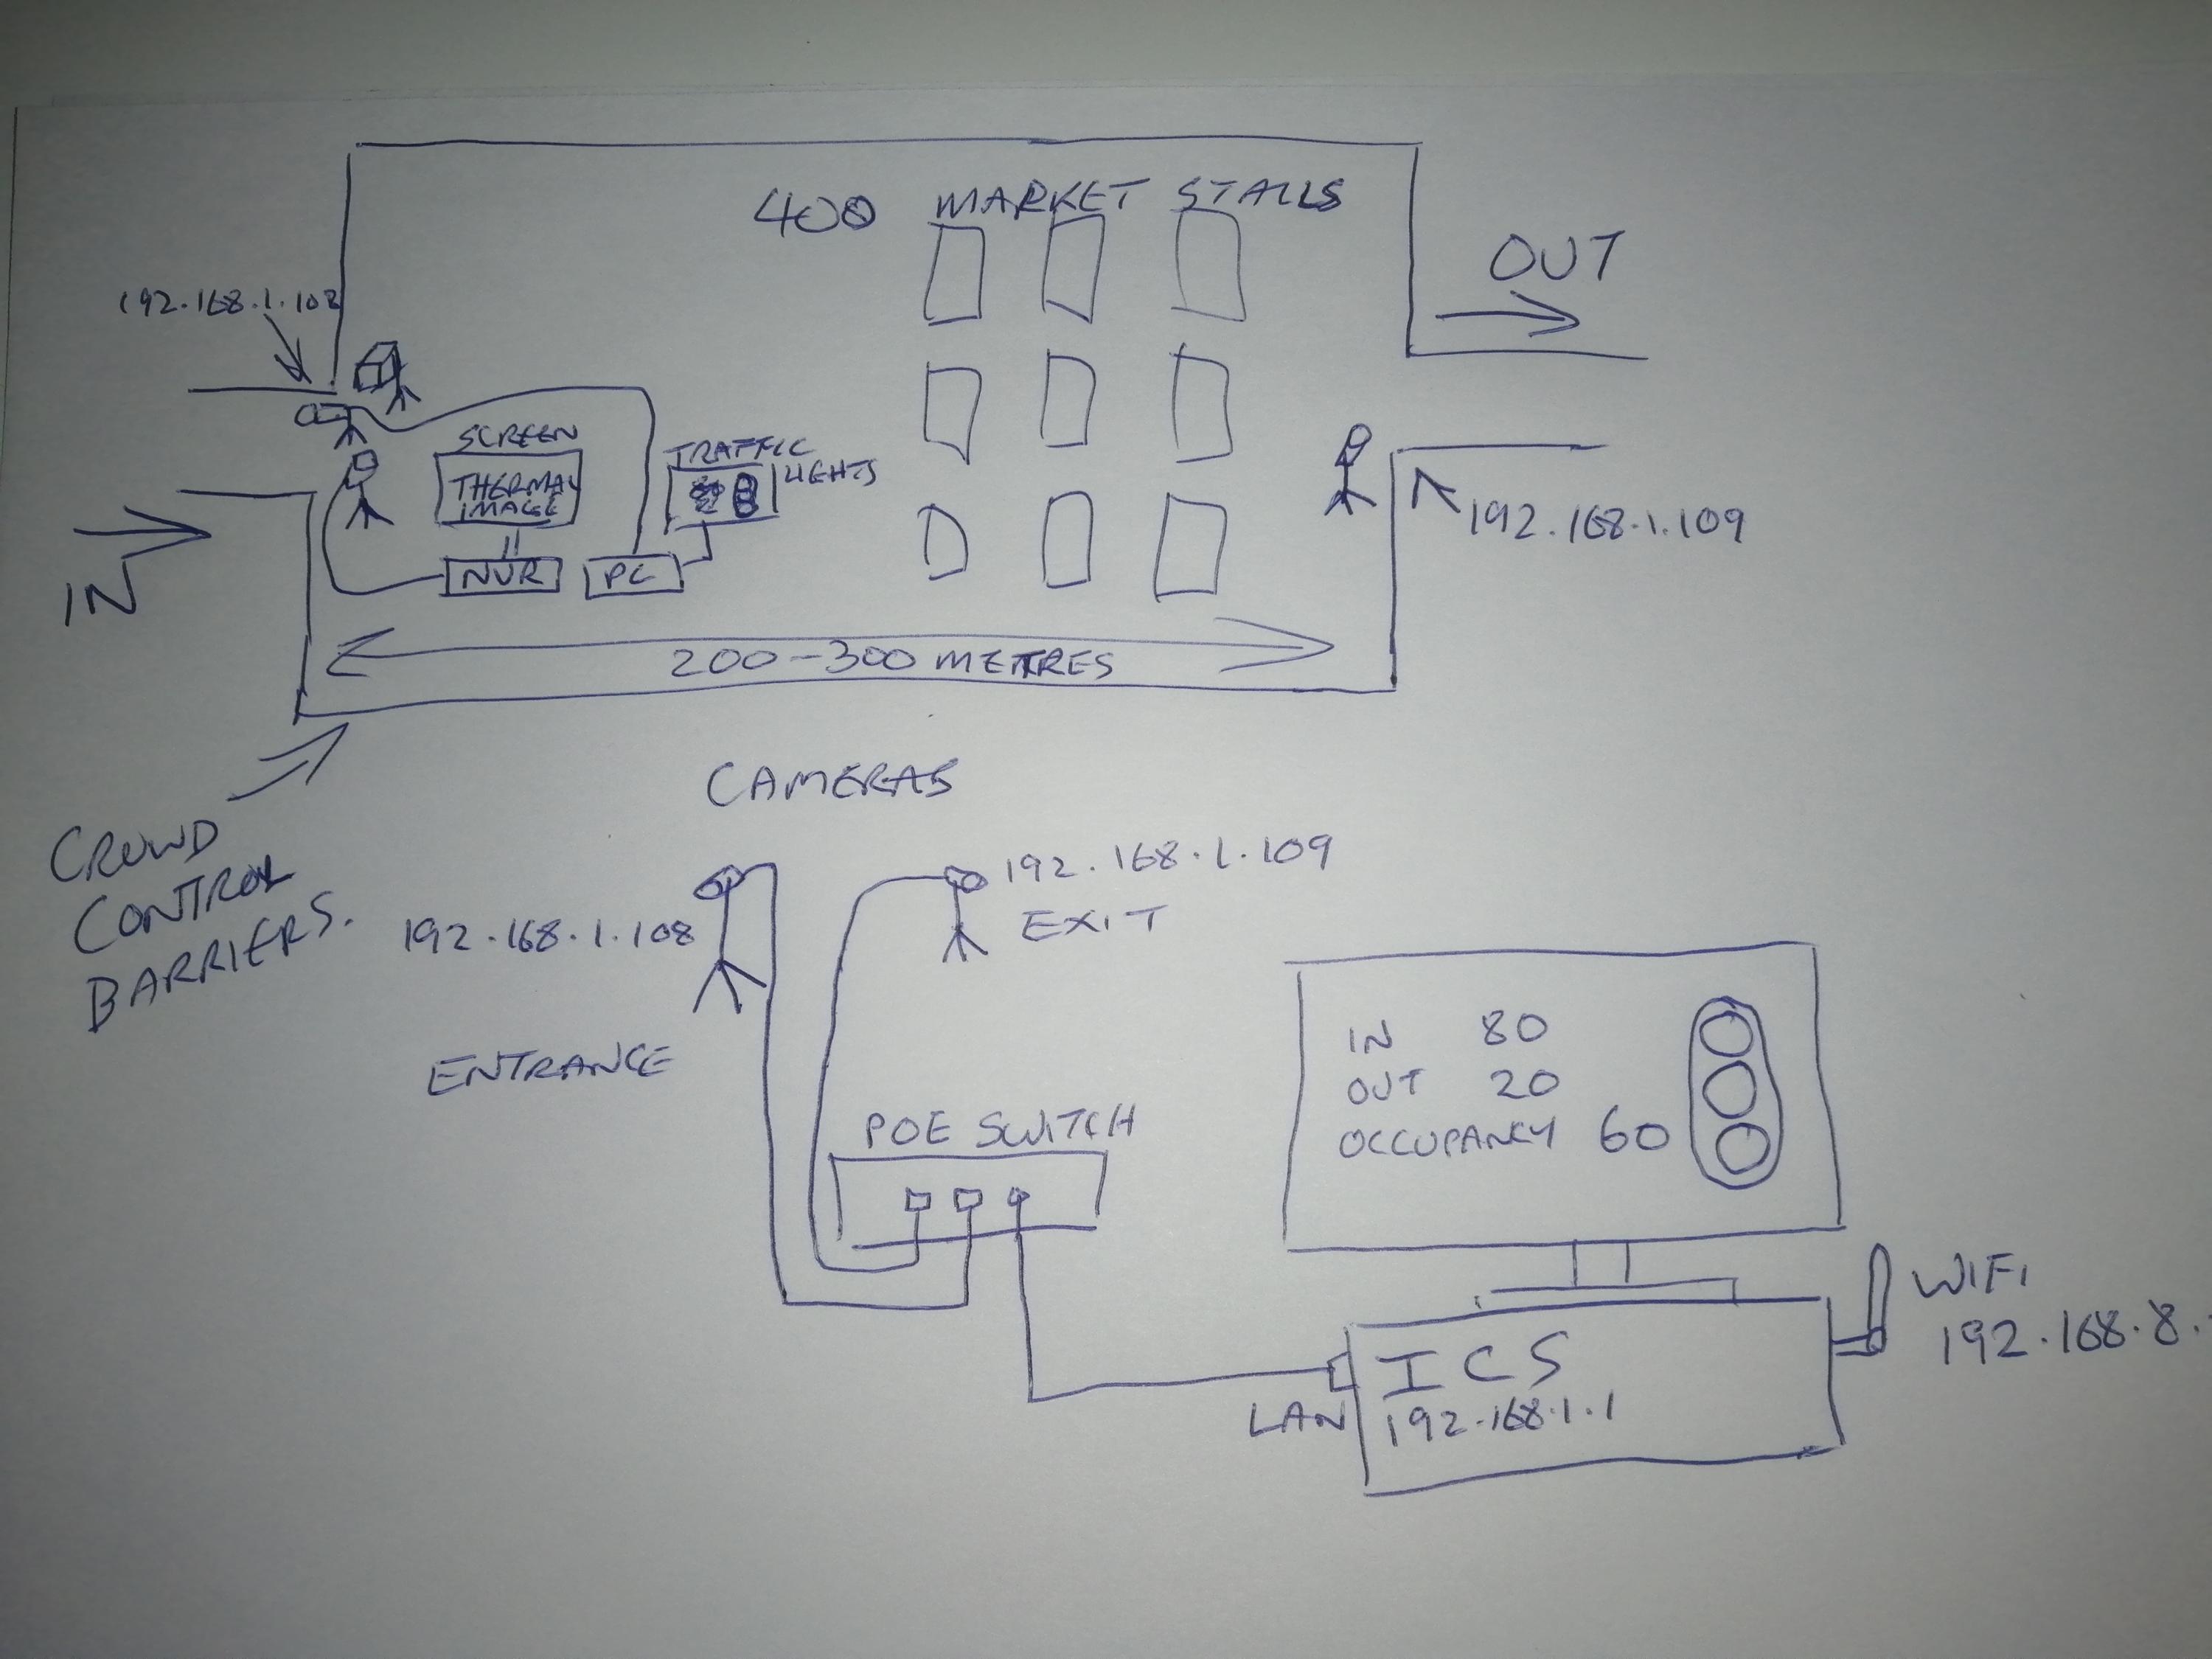 400 MARKET STALLS
OUT
192.168.1.108
SCREEN
THERMAL
IMAGE
TRAFFIC
LIGHTS
NVR
PC
IN
192.168.1.109
200-300 METRES
CROWD
CONTROL
BARRIERS.
CAMERAS
192.168.1.109
EXIT
192.168.1.108
ENTRANCE
POE SWITCH
IN 80
OUT 20
OCCUPANCY 60
WIFI
192.168.8.
LAN
ICS
192.168.1.1